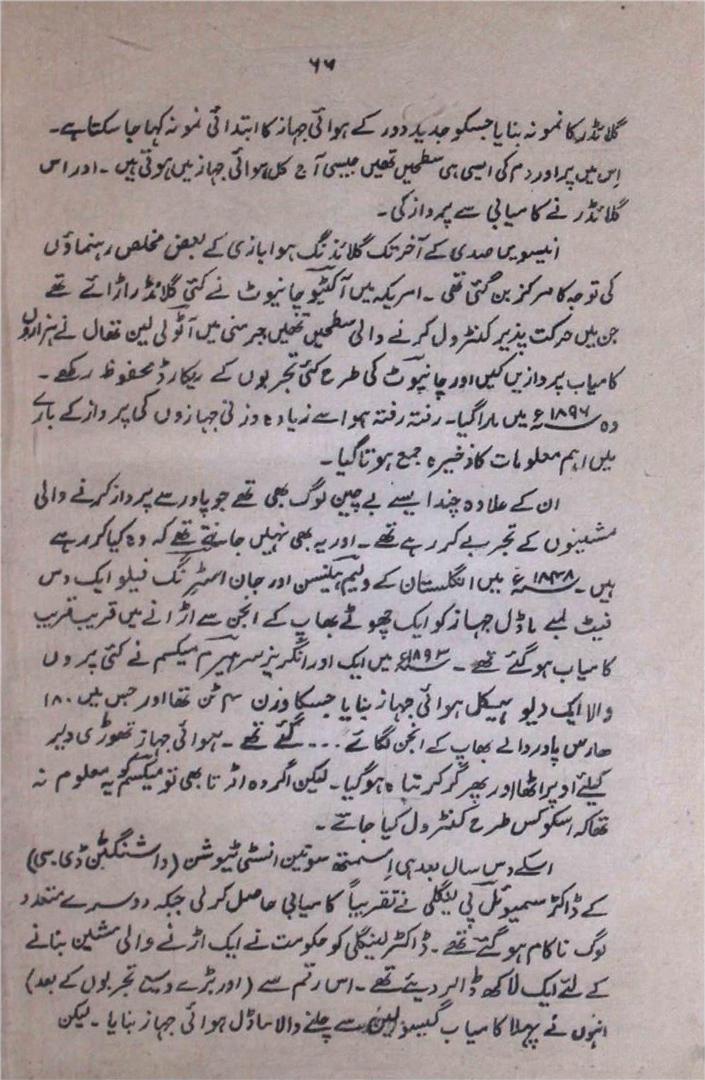 ۶۶
گلائڈر کا نمونہ بنایا جسکو جدید دور کے ہوائی جہاز کا ابتدائی نمونہ کہا جا سکتا ہے۔
اِس میں پر اور دم کی ایسی ہی سطحیں تھیں جیسی آج کل ہوائی جہاز میں ہوتی ہیں۔ اور اس
گلائڈر نے کامیابی سے پرواز کی۔
انیسویں صدی کے آخر تک گلائڈنگ ہوا بازی کے بعض مخلص رہنماؤں
کی توجہ کا مرکز بن گئی تھی۔ امریکہ میں آکٹیو چانیوٹ نے کئی گلائڈر اڑائے تھے
جن میں حرکت پذیر کنٹرول کرنے والی سطحیں تھیں جرمنی میں آٹو لی لین تھال نے ہزاروں
کامیاب پروازیں کیں اور چانیوٹ کی طرح کئی تجربوں کے ریکارڈ محفوظ رکھے۔
وہ ۱۸۹۶ء میں مارا گیا۔ رفتہ رفتہ ہوا سے زیادہ وزنی جہازوں کی پرواز کے بارے
میں اہم معلومات کا ذخیرہ جمع ہوتا گیا۔
ان کے علاوہ چند ایسے بے چین لوگ بھی تھے جو پاور سے پرواز کرنے والی
مشینوں کے تجربے کر رہے تھے۔ اور یہ بھی نہیں جانتے تھے کہ وہ کیا کر رہے
ہیں۔ ۱۸۴۸ء میں انگلستان کے ولیم ہینسن اور جان اسٹرنگ فیلو ایک دس
فیٹ لمبے ماڈل جہاز کو ایک چھوٹے بھاپ کے انجن سے اڑانے میں قریب قریب
کامیاب ہو گئے تھے۔ ۱۸۹۳ء میں ایک اور انگریز سر ہیرم میکسم نے کئی پروں
والا ایک دیو ہیکل ہوائی جہاز بنایا جسکا وزن ۴ ٹن تھا اور جس میں ۱۸۰
ھارس پاور والے بھاپ کے انجن لگائے ... گئے تھے۔ ہوائی جہاز تھوڑی دیر
کیلئے اوپر اٹھا اور پھر گر کر تباہ ہو گیا۔ لیکن اگر وہ اڑتا بھی تو میکسم کو یہ معلوم نہ
تھا کہ اسکو کس طرح کنٹرول کیا جائے۔
اسکے دس سال بعد ہی اِسمتھ سوتین انسٹی ٹیوشن (واشنگٹن ڈی سی)
کے ڈاکڑ سمیوئل پی لینگلی نے تقریباً کامیابی حاصل کر لی جبکہ دوسرے متعدد
لوگ ناکام ہو گئے تھے۔ ڈاکٹر لینگلی کو حکومت نے ایک اڑنے والی مشین بنانے
کے لئے ایک لاکھ ڈالر دیئے تھے۔ اس رقم سے (اور بڑے وسیع تجربوں کے بعد)
انہوں نے پہلا کامیاب گیسولین سے چلنے والا ماڈل ہوائی جہاز بنایا۔ لیکن